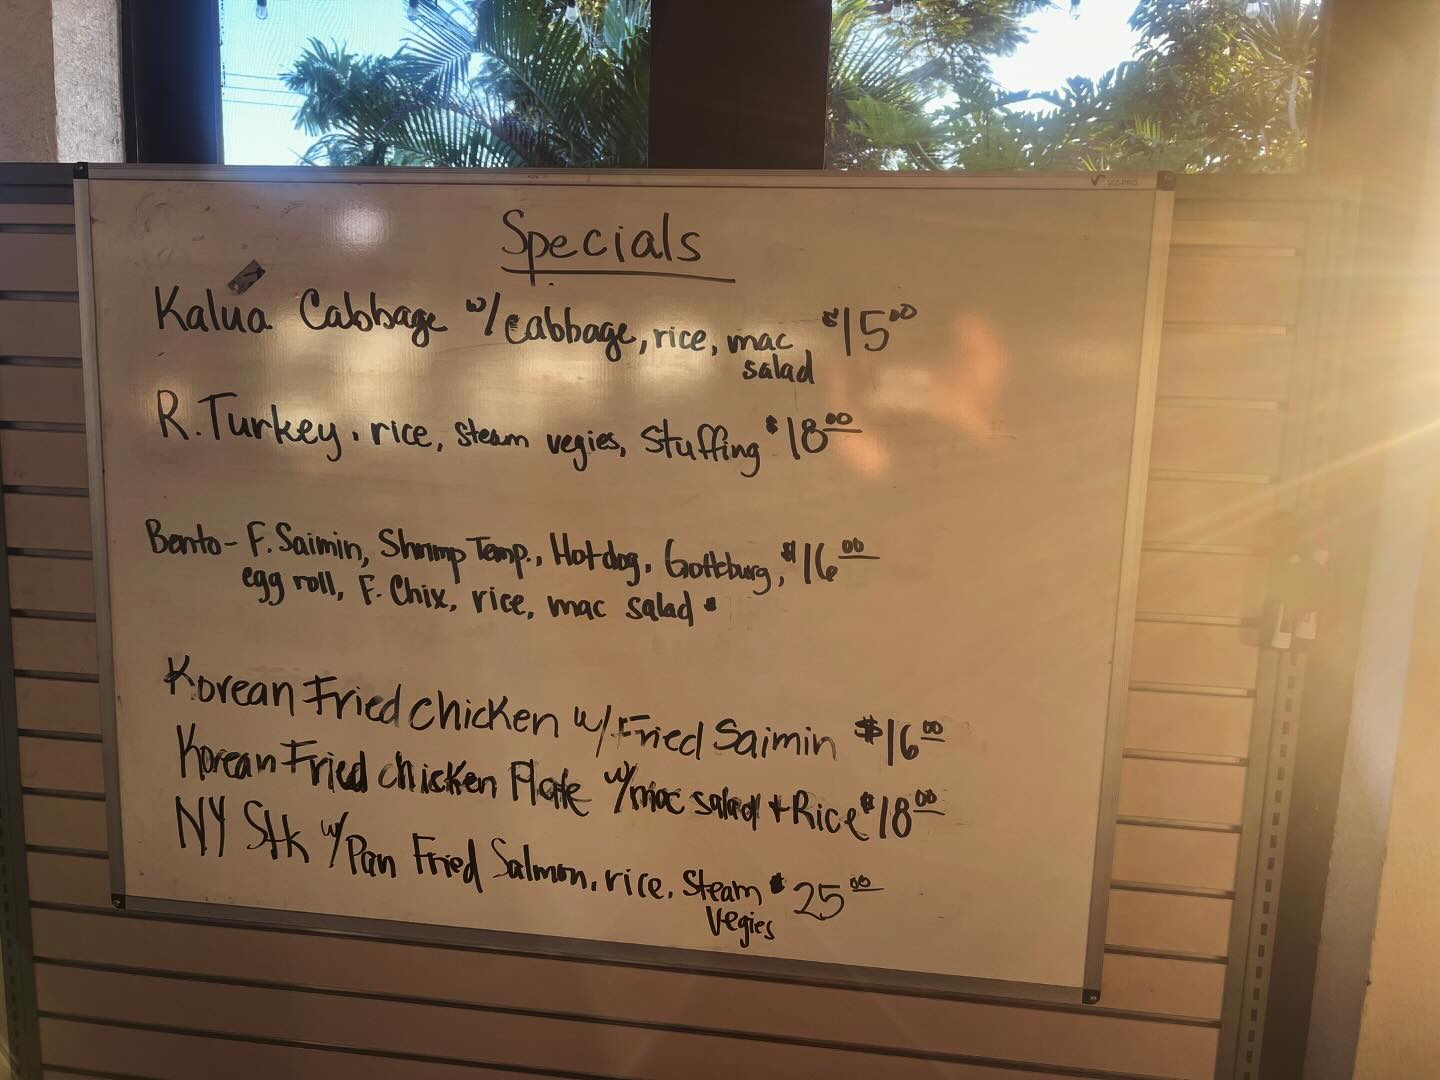 Specials
Kalua Cabbage w/ cabbage, rice, mac $15.00
salad
R. Turkey, rice, steam vegies, Stuffing $18.00
Bento - F. Saimin, Shrimp Temp., Hotdog, Gotteburg, $16.00
egg roll, F. Chix, rice, mac salad.
Korean Fried chicken w/ Fried Saimin $16.00
Korean Fried chicken Plate w/ mac salad + Rice $18.00
NY Stk w/ Pan Fried Salmon, rice, Steam $25.00
Vegies